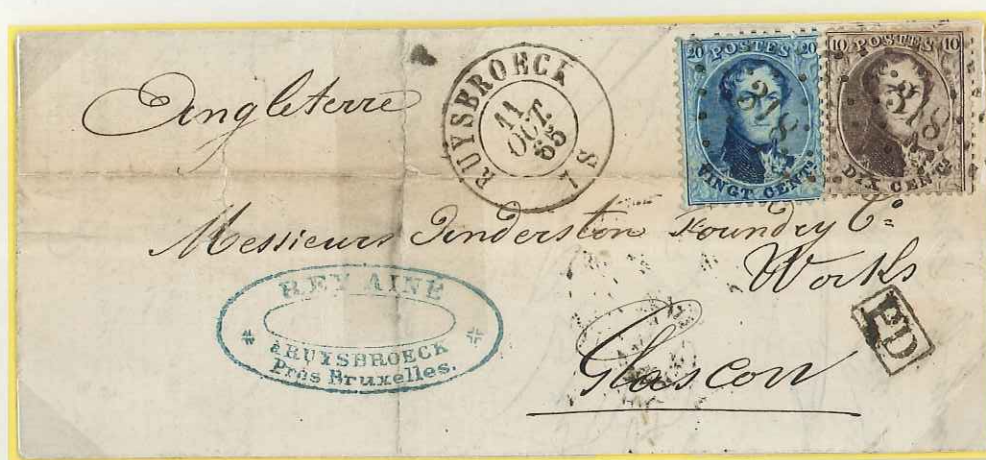 Angleterre
RUYSBROECK
11
OCT.
65
20 POSTES 20
318
VINGT CENTS
10 POSTES 10
318
DIX CENTS
Messieurs Finderston Foundry Co
Works
REY AINÉ
à RUYSBROECK
Près Bruxelles.
PD
Glascow